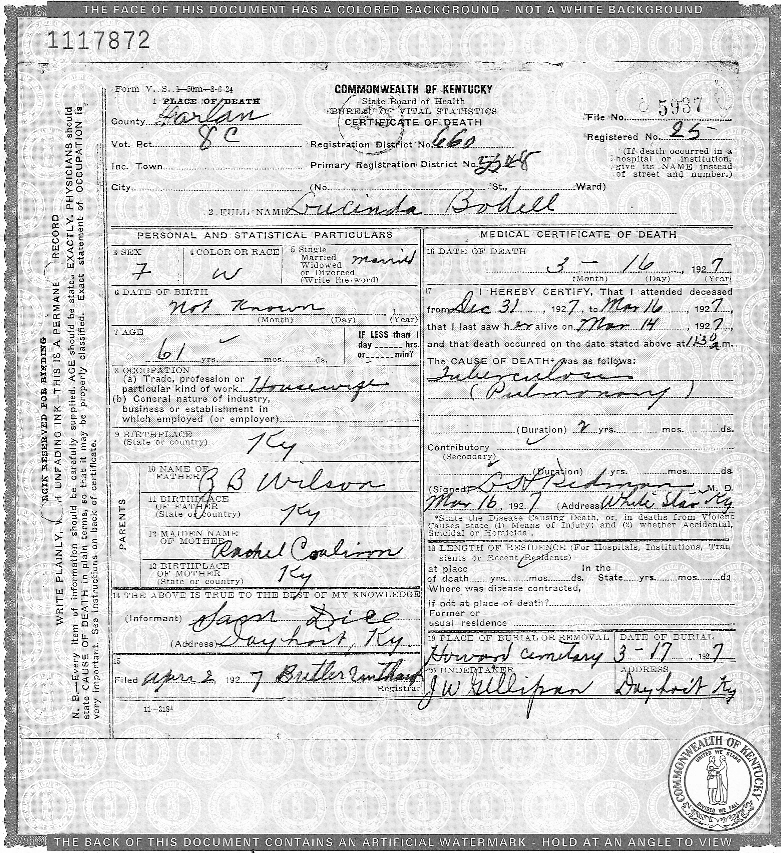 THE FACE OF THIS DOCUMENT HAS A COLORED BACKGROUND - NOT A WHITE BACKGROUND
1117872
Form V. S. 1-50m-3-6-24
COMMONWEALTH OF KENTUCKY
State Board of Health
BUREAU OF VITAL STATISTICS
CERTIFICATE OF DEATH
1 PLACE OF DEATH
County Harlan
Vot. Pct. 8C
Inc. Town
City
Registration District No. 660
Primary Registration District No.
(No. St., Ward)
File No. 5937
Registered No. 25
(If death occurred in a
hospital or institution,
give its NAME instead
of street and number.)
2 FULL NAME Lucinda Bodell
PERSONAL AND STATISTICAL PARTICULARS
3 SEX
F
4 COLOR OR RACE
W
5 Single
Married
Widowed
or Divorced
(Write the word)
Married
6 DATE OF BIRTH
Not Known
(Month) (Day) (Year)
7 AGE
61 yrs. mos. ds.
IF LESS than 1
day hrs.
or min?
8 OCCUPATION
(a) Trade, profession or
particular kind of work Housewife
(b) General nature of industry,
business or establishment in
which employed (or employer)
9 BIRTHPLACE
(State or country) Ky
PARENTS
10 NAME OF
FATHER B B Wilson
11 BIRTHPLACE
OF FATHER
(State or country) Ky
12 MAIDEN NAME
OF MOTHER Rachel
13 BIRTHPLACE
OF MOTHER
(State or country) Ky
14 THE ABOVE IS TRUE TO THE BEST OF MY KNOWLEDGE
(Informant) Sam Dice
(Address) Dayhoit, Ky
15
Filed Apr 2 1927 Butler
Registrar
11-3184
MEDICAL CERTIFICATE OF DEATH
16 DATE OF DEATH
3 - 16, 1927
(Month) (Day) (Year)
17 I HEREBY CERTIFY, That I attended deceased
from Dec 31, 1927, to Mar 16, 1927,
that I last saw her alive on Mar 14, 1927,
and that death occurred on the date stated above at m.
The CAUSE OF DEATH* was as follows:
Tuberculosis
(Pulmonary)
(Duration) 2 yrs. mos. ds.
Contributory
(Secondary)
(Duration) yrs. mos. ds.
(Signed) M. D.
Mar 16, 1927 (Address) White Star Ky
*State the Disease Causing Death, or, in deaths from Violent
Causes state (1) Means of Injury; and (2) whether Accidental,
Suicidal or Homicidal.
18 LENGTH OF RESIDENCE (For Hospitals, Institutions, Tran
sients or Recent Residents)
At place In the
of death yrs. mos. ds. State yrs. mos. ds
Where was disease contracted,
If not at place of death?
Former or
usual residence
19 PLACE OF BURIAL OR REMOVAL
Howard Cemetary
DATE OF BURIAL
3-17, 1927
20 UNDERTAKER
J W
ADDRESS
Dayhoit Ky
MARGIN RESERVED FOR BINDING
WRITE PLAINLY, WITH UNFADING INK—THIS IS A PERMANENT RECORD
N. B.—Every item of information should be carefully supplied. AGE should be stated EXACTLY. PHYSICIANS should
state CAUSE OF DEATH in plain terms, so that it may be properly classified. Exact statement of OCCUPATION is
very important. See instructions on back of certificate.
COMMONWEALTH OF KENTUCKY
UNITED WE STAND
DIVIDED WE FALL
THE BACK OF THIS DOCUMENT CONTAINS AN ARTIFICIAL WATERMARK - HOLD AT AN ANGLE TO VIEW